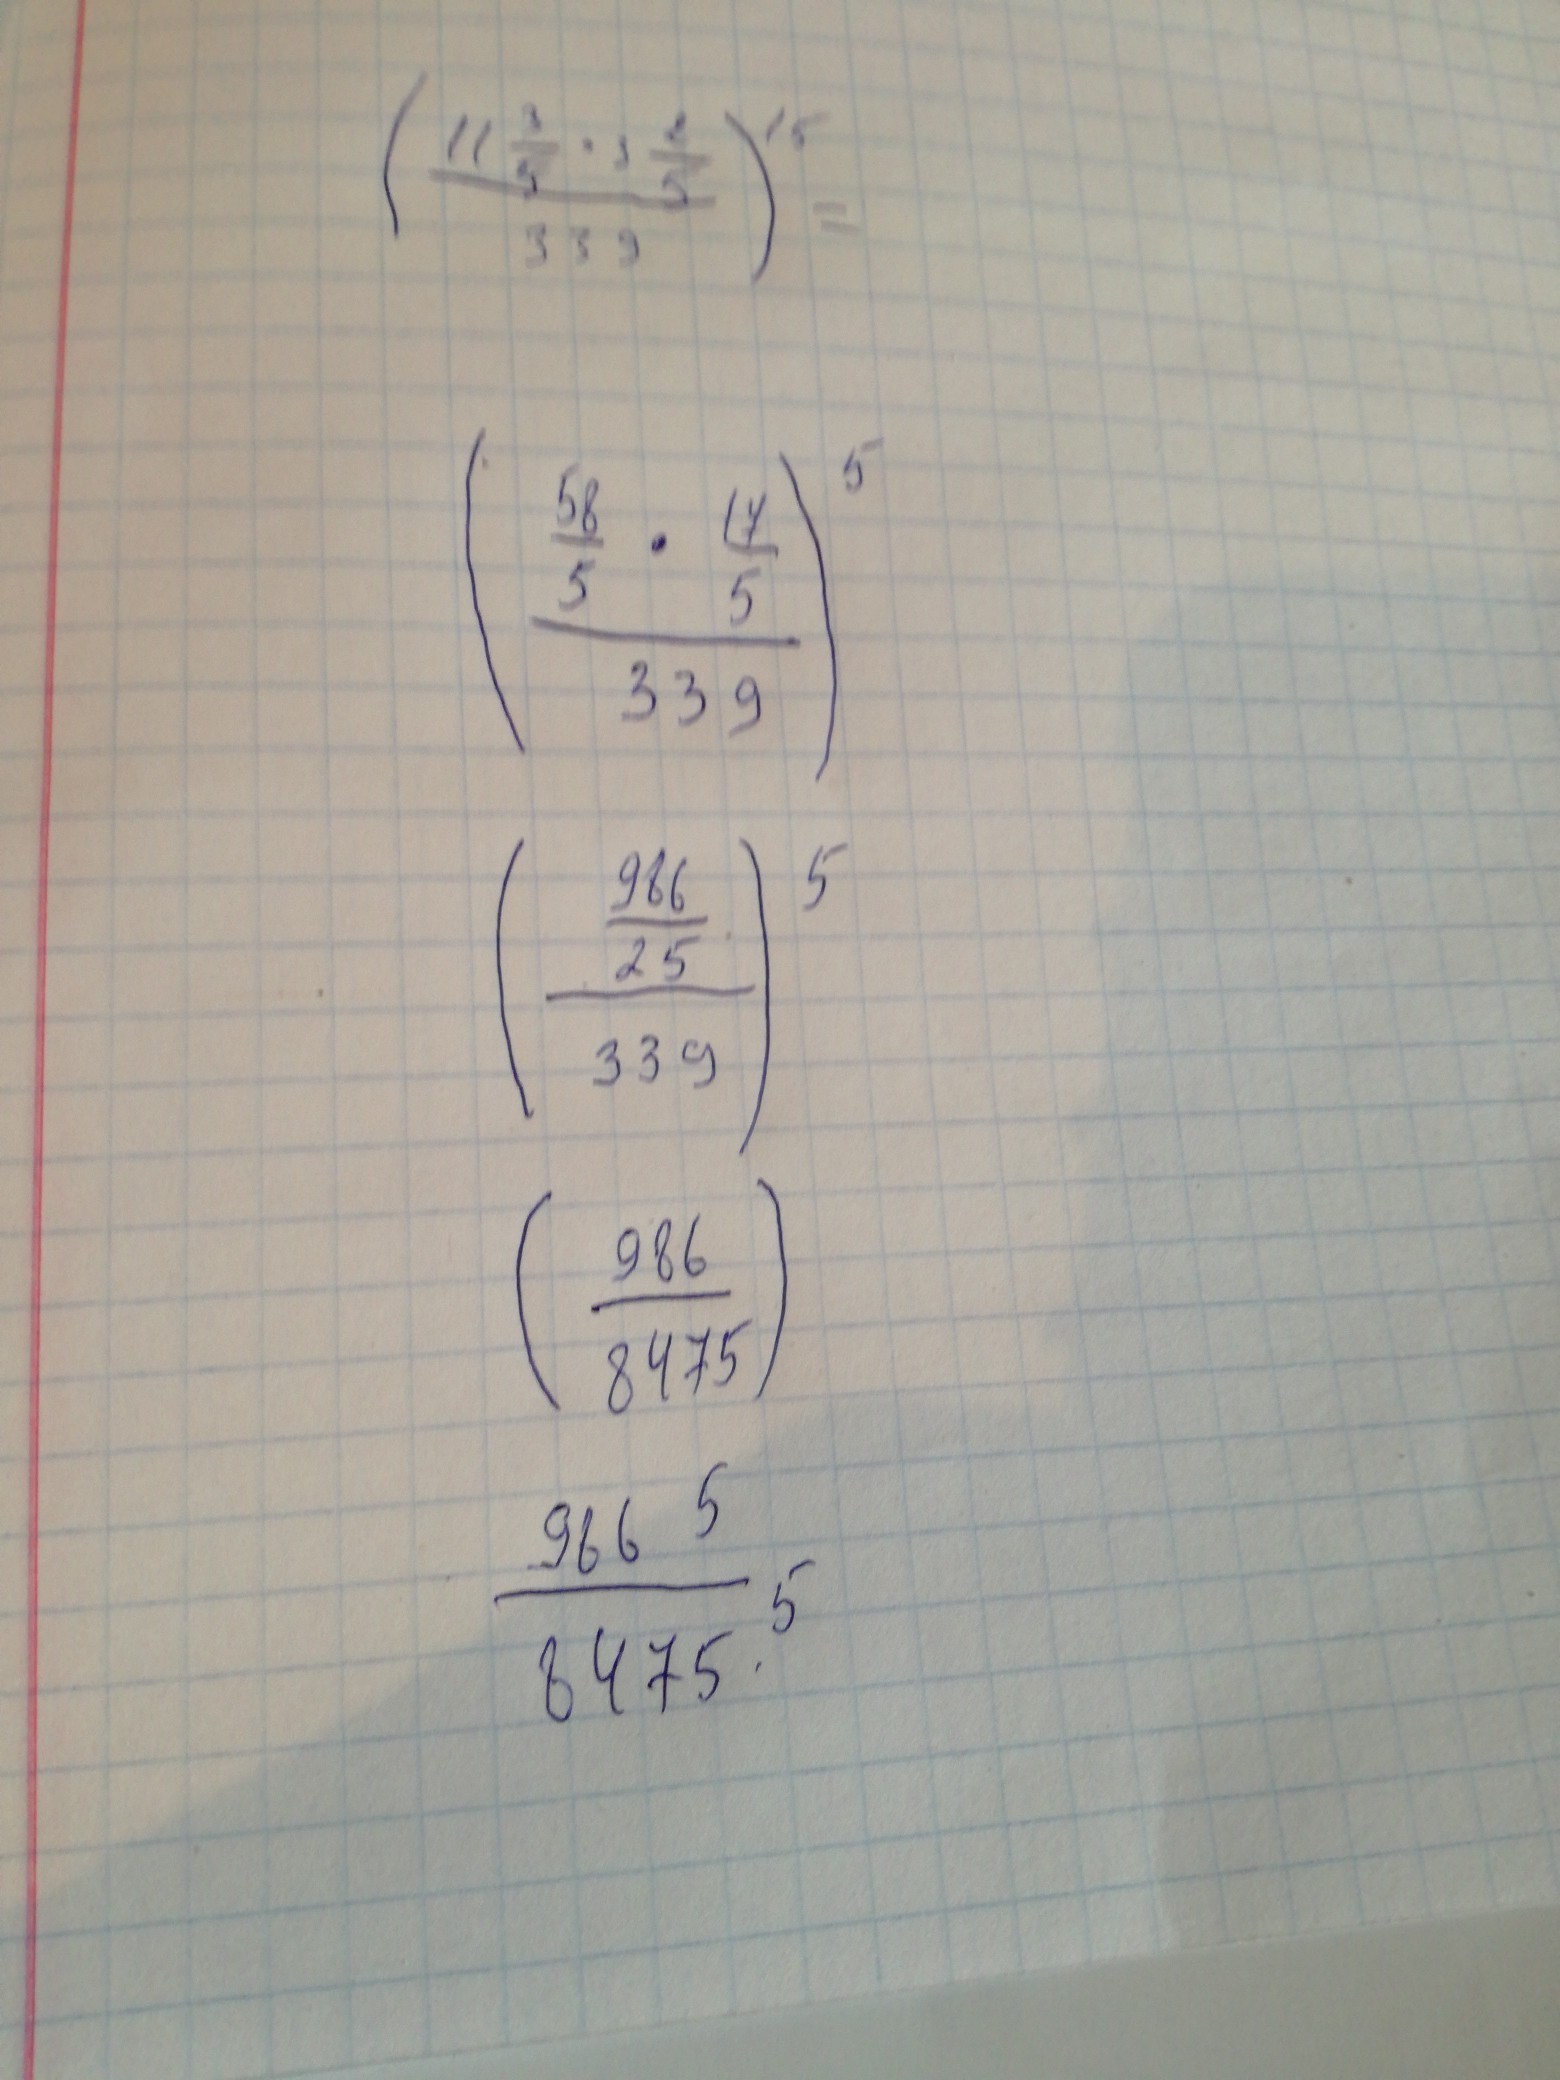 (11 3/5 · 3 2/5 / 339)^15 =
(58/5 · 17/5 / 339)^5
(986/25 / 339)^5
(986/8475)
986^5 / 8475^5